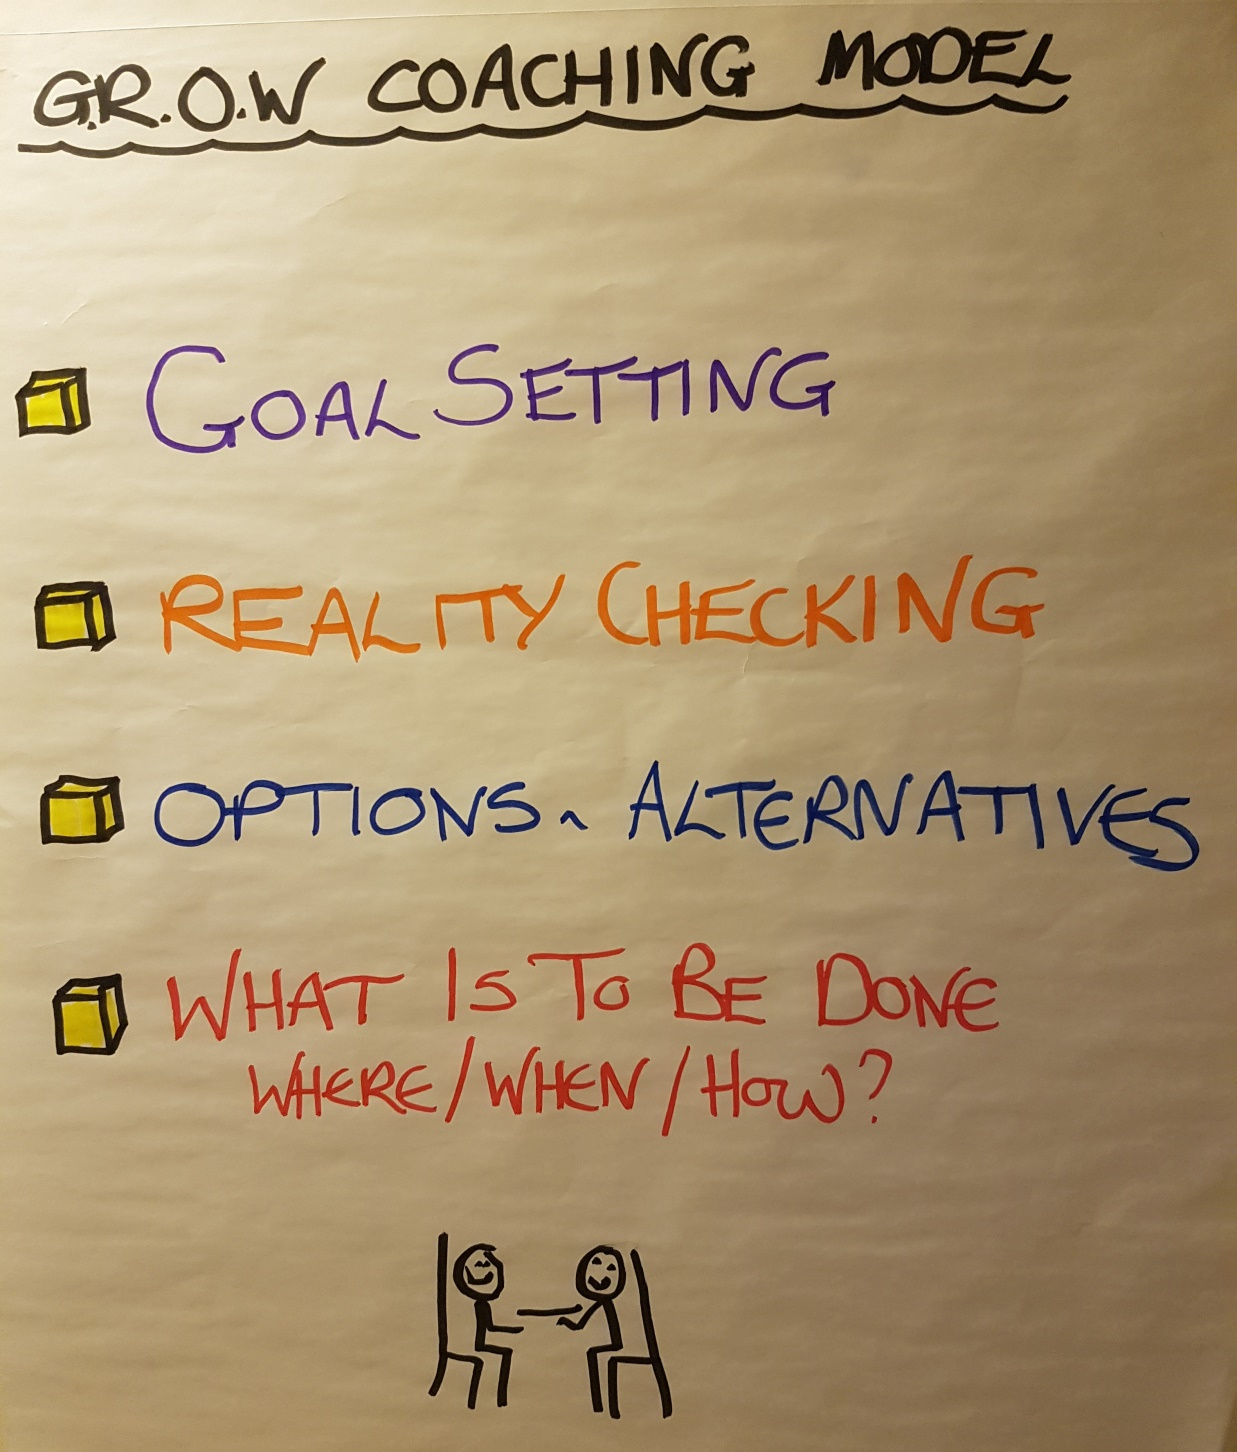 G.R.O.W COACHING MODEL
GOAL SETTING
REALITY CHECKING
OPTIONS ~ ALTERNATIVES
WHAT IS TO BE DONE
WHERE/WHEN/HOW?